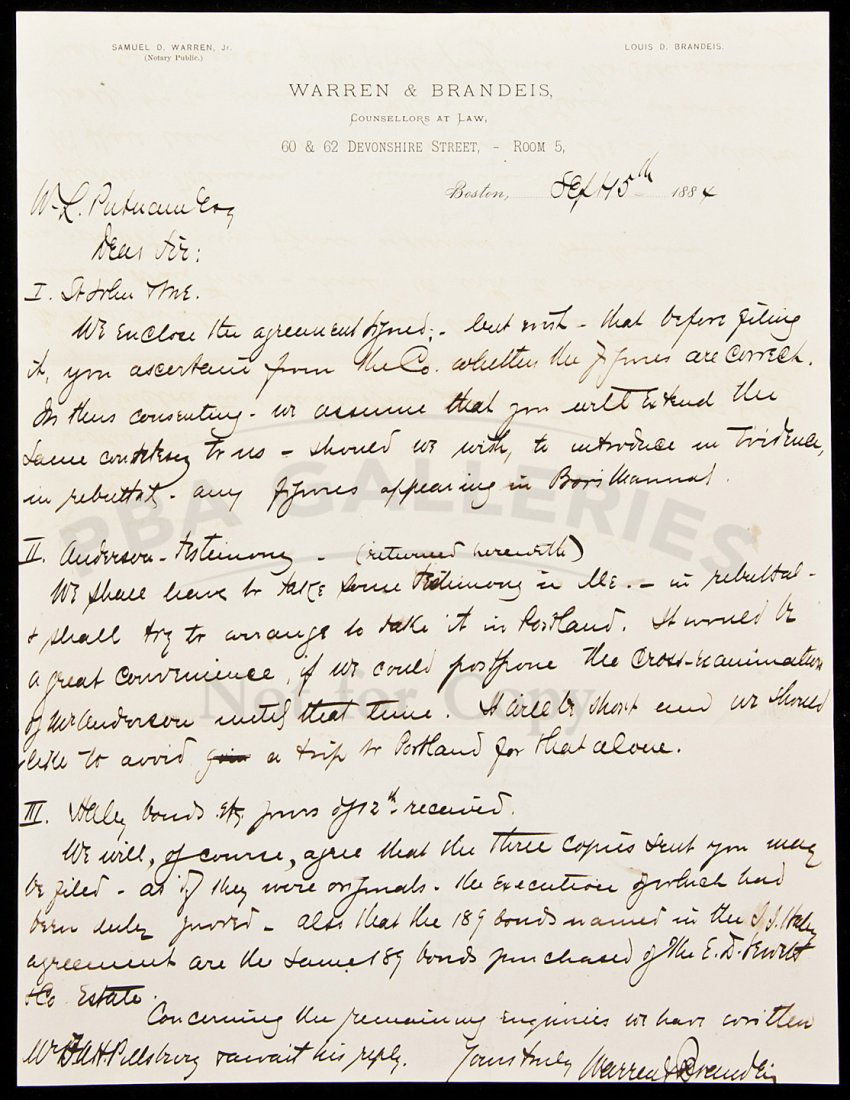 SAMUEL D. WARREN, Jr.
(Notary Public.)
LOUIS D. BRANDEIS.
WARREN & BRANDEIS,
COUNSELLORS AT LAW,
60 & 62 DEVONSHIRE STREET, - ROOM 5,
Boston, Sept 15th 1884
W. L. Putnam Esq
Dear Sir:
I. St John
We enclose the agreement signed; - but wish - that before filing
it, you ascertain from the Co. whether the figures are correct.
In thus consenting - we assume that you will extend the
same courtesy to us - should we wish, to introduce in evidence,
in rebuttal - any figures appearing in Manual.
II. Anderson - testimony - (returned herewith)
We shall have to take some testimony in Me. - in rebuttal -
& shall try to arrange to take it in Portland. It would be
a great convenience, if we could postpone the cross-examination
of Mr Anderson until that time. It will be short and we should
like to avoid a trip to Portland for that alone.
III. Haley bonds etc yours of 12th received.
We will, of course, agree that the three copies sent you may
be filed - as if they were originals - the execution of which had
been duly proved - also that the 189 bonds named in the Haley
agreement are the same 189 bonds purchased of the E. D.
& Co Estate.
Concerning the remaining enquiries we have written
Mr Pillsbury & await his reply. Yours truly Warren & Brandeis
PBA GALLERIES
Not for Copy